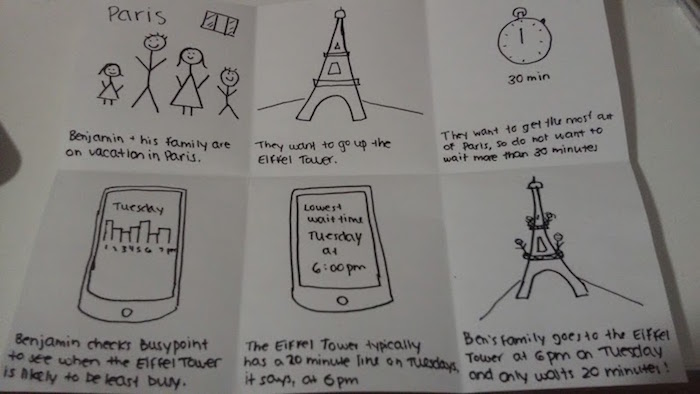 Paris
Benjamin + his family are
on vacation in Paris.
They want to go up the
Eiffel Tower.
30 min
They want to get the most out
of Paris, so do not want to
wait more than 30 minutes
Tuesday
1 2 3 4 5 6 7 8
Benjamin checks Busypoint
to see when the Eiffel Tower
is likely to be least busy.
Lowest
wait time
Tuesday
at
6:00pm
The Eiffel Tower typically
has a 20 minute line on Tuesdays,
it says, at 6pm
Ben's family goes to the Eiffel
Tower at 6pm on Tuesday
and only waits 20 minutes!